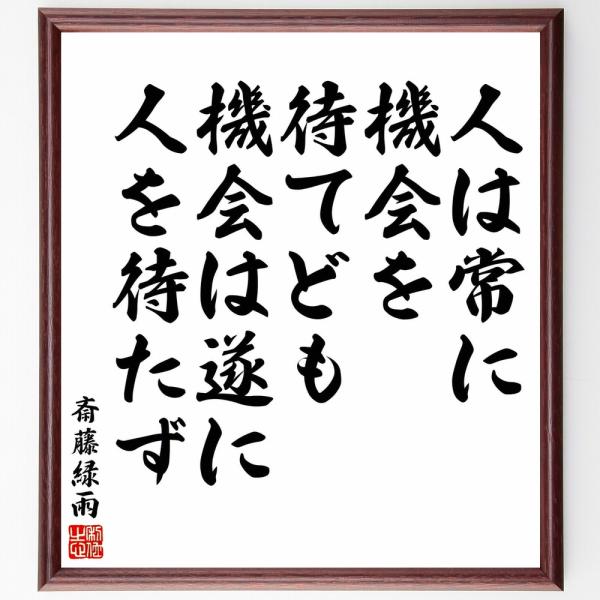 人は常に
機会を
待てども
機会は遂に
人を待たず
斎藤緑雨